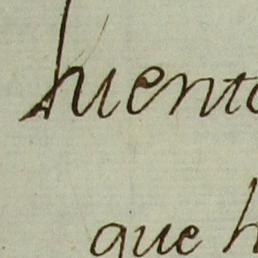 huento
que h